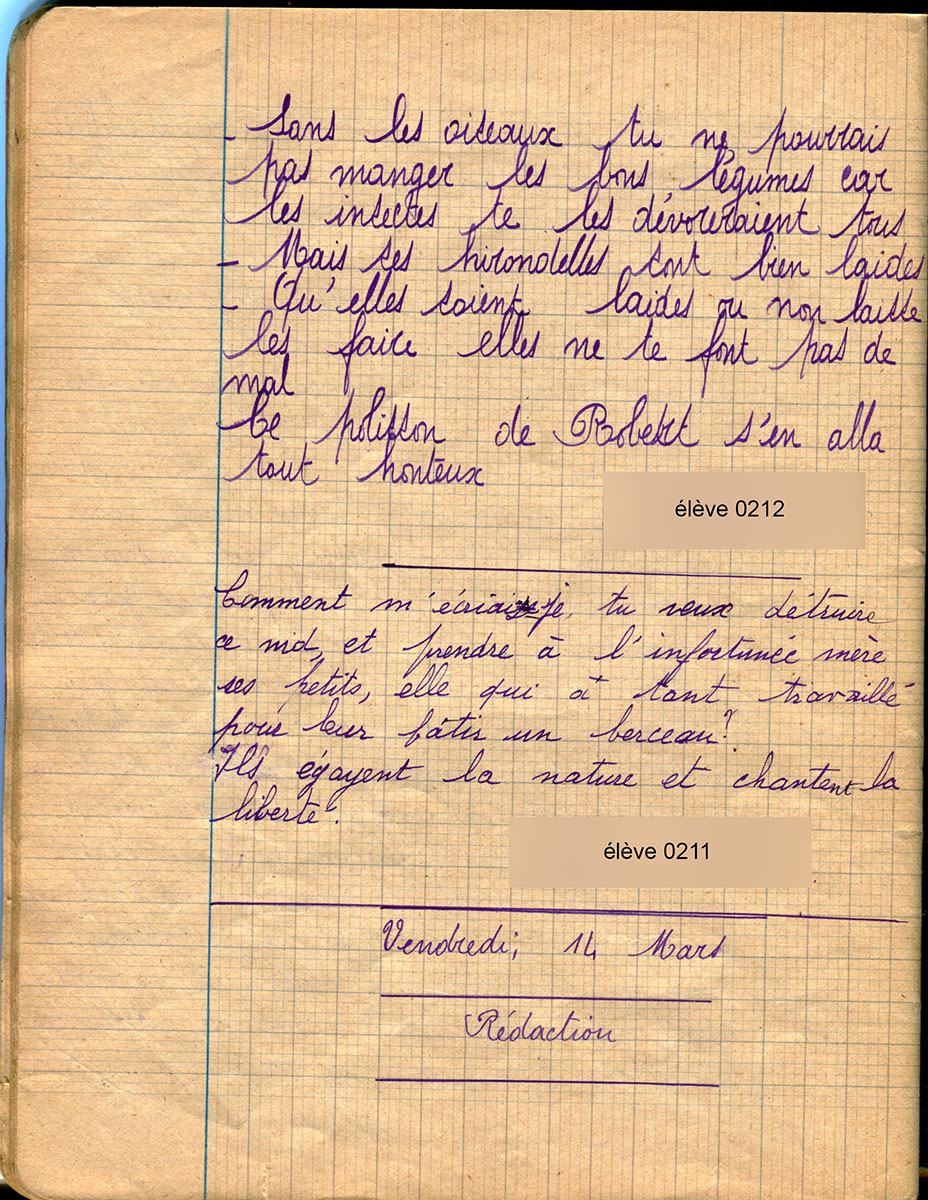 - Sans les oiseaux tu ne pourrais
pas manger les bons légumes car
les insectes te les dévoreraient tous
- Mais ses hirondelles sont bien laides
- Qu'elles soient laides ou non laisse
les faire elles ne te font pas de
mal
Ce polisson de Robert s'en alla
tout honteux
élève 0212
Comment m'écriais-je, tu veux détruire
ce nid, et prendre à l'infortunée mère
ses petits, elle qui a tant travaillé
pour leur bâtir un berceau?
Ils égayent la nature et chantent la
liberté.
élève 0211
Vendredi, 14 Mars
Rédaction